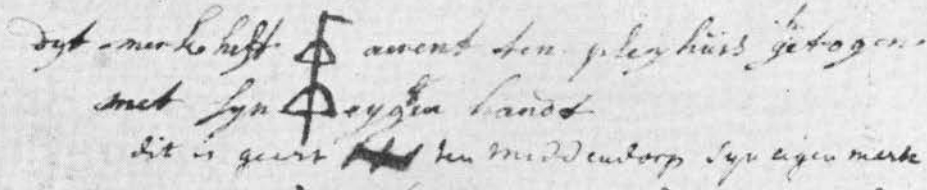 dyt merke heft arent ten pleghuis getogen
met syn eygen handt
dit is geert ten middendorp syn eigen merk